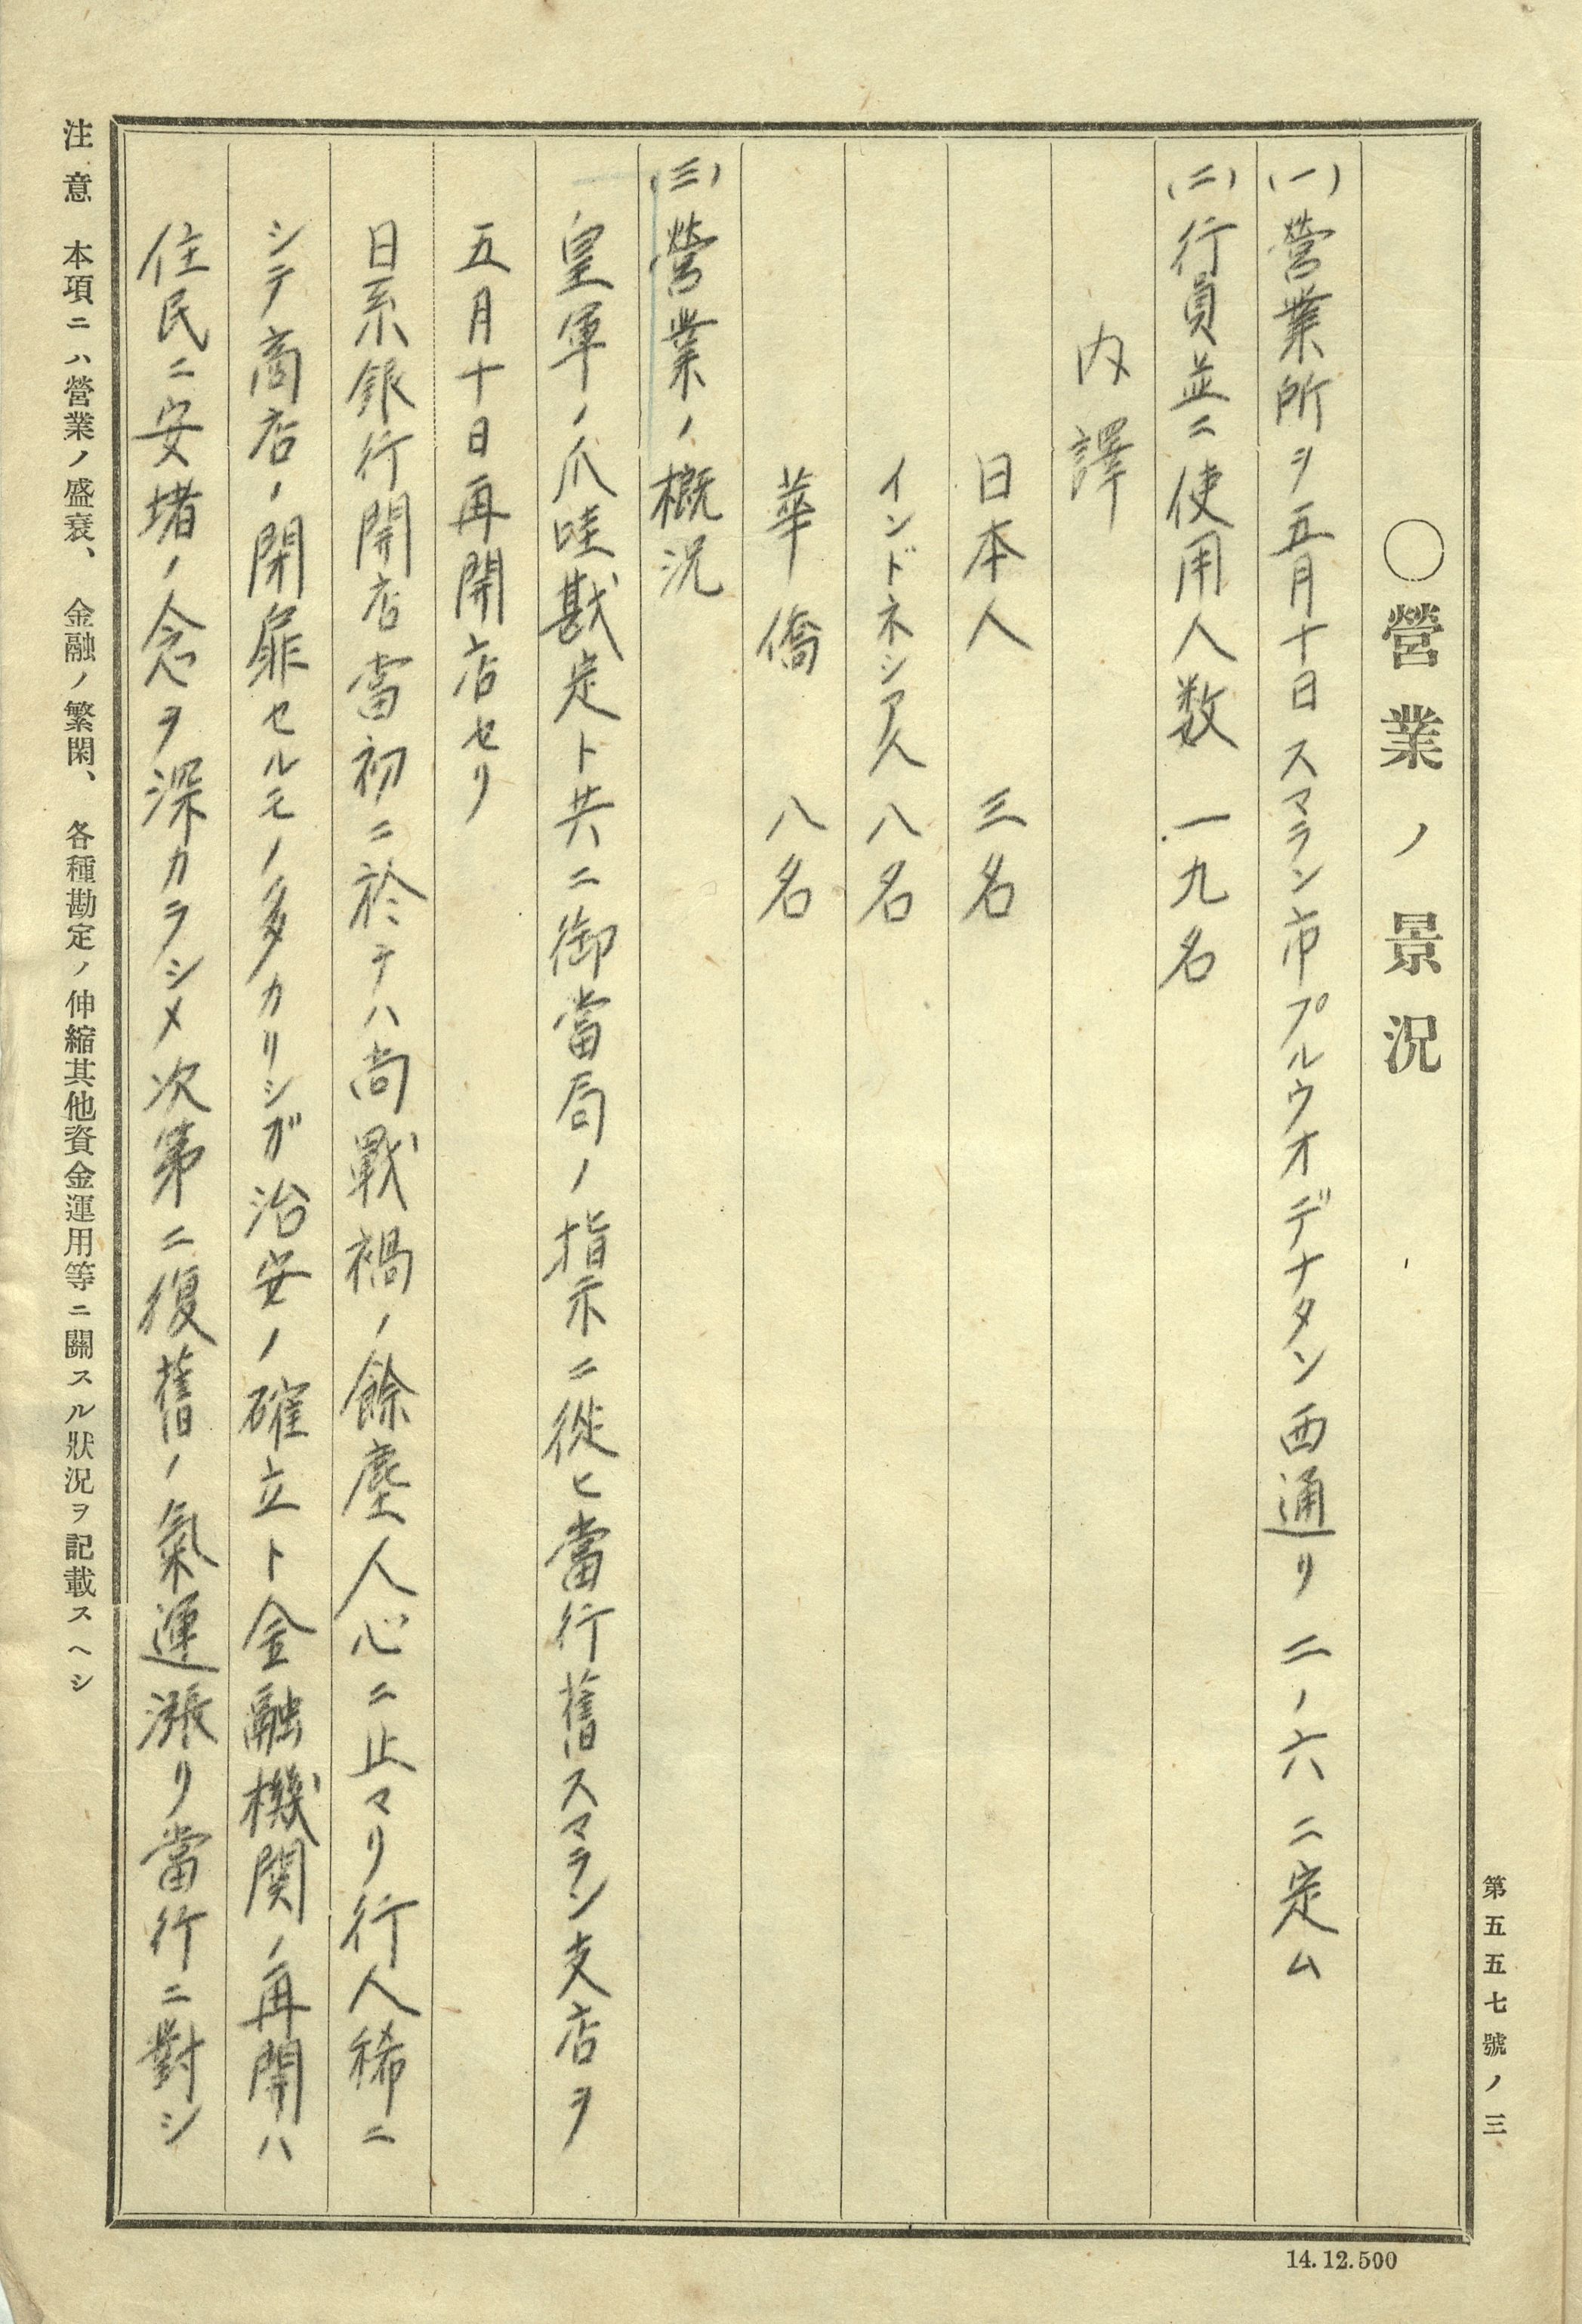 第五五七號ノ三
〇營業ノ景況
(一)營業所ヲ五月十日スマラン市プルウオデナタン西通リ二ノ六ニ定ム
(二)行員並ニ使用人数 一九名
内譯
日本人 三名
インドネシア人 八名
華僑 八名
(三)營業ノ概況
皇軍ノ爪哇戡定ト共ニ御當局ノ指示ニ從ヒ當行舊スマラン支店ヲ
五月十日再開店セリ
日系銀行開店當初ニ於テハ尚戰禍ノ餘塵人心ニ止マリ行人稀ニ
シテ商店ノ閉扉セルモノ多カリシガ治安ノ確立ト金融機関ノ再開ハ
住民ニ安堵ノ念ヲ深カラシメ次第ニ復舊ノ氣運漲リ當行ニ對シ
注意 本項ニハ營業ノ盛衰、金融ノ繁閑、各種勘定ノ伸縮其他資金運用等ニ關スル狀況ヲ記載スヘシ
14.12.500